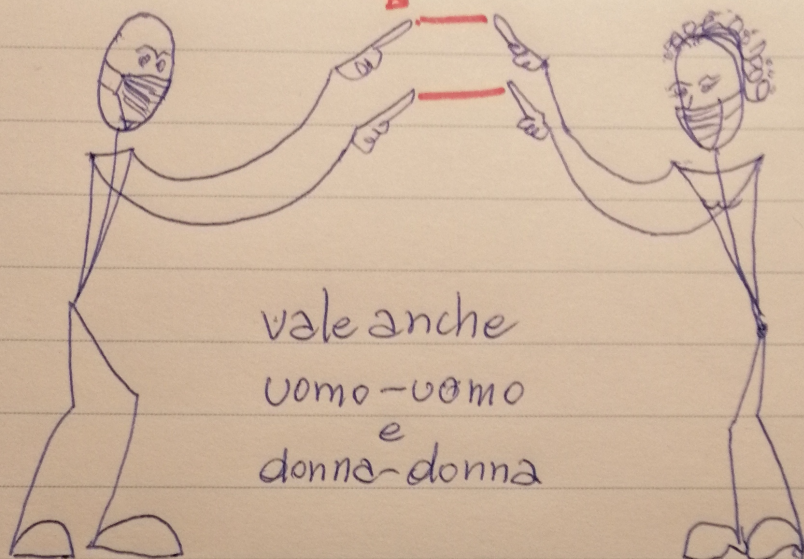 vale anche
uomo-uomo
e
donna-donna